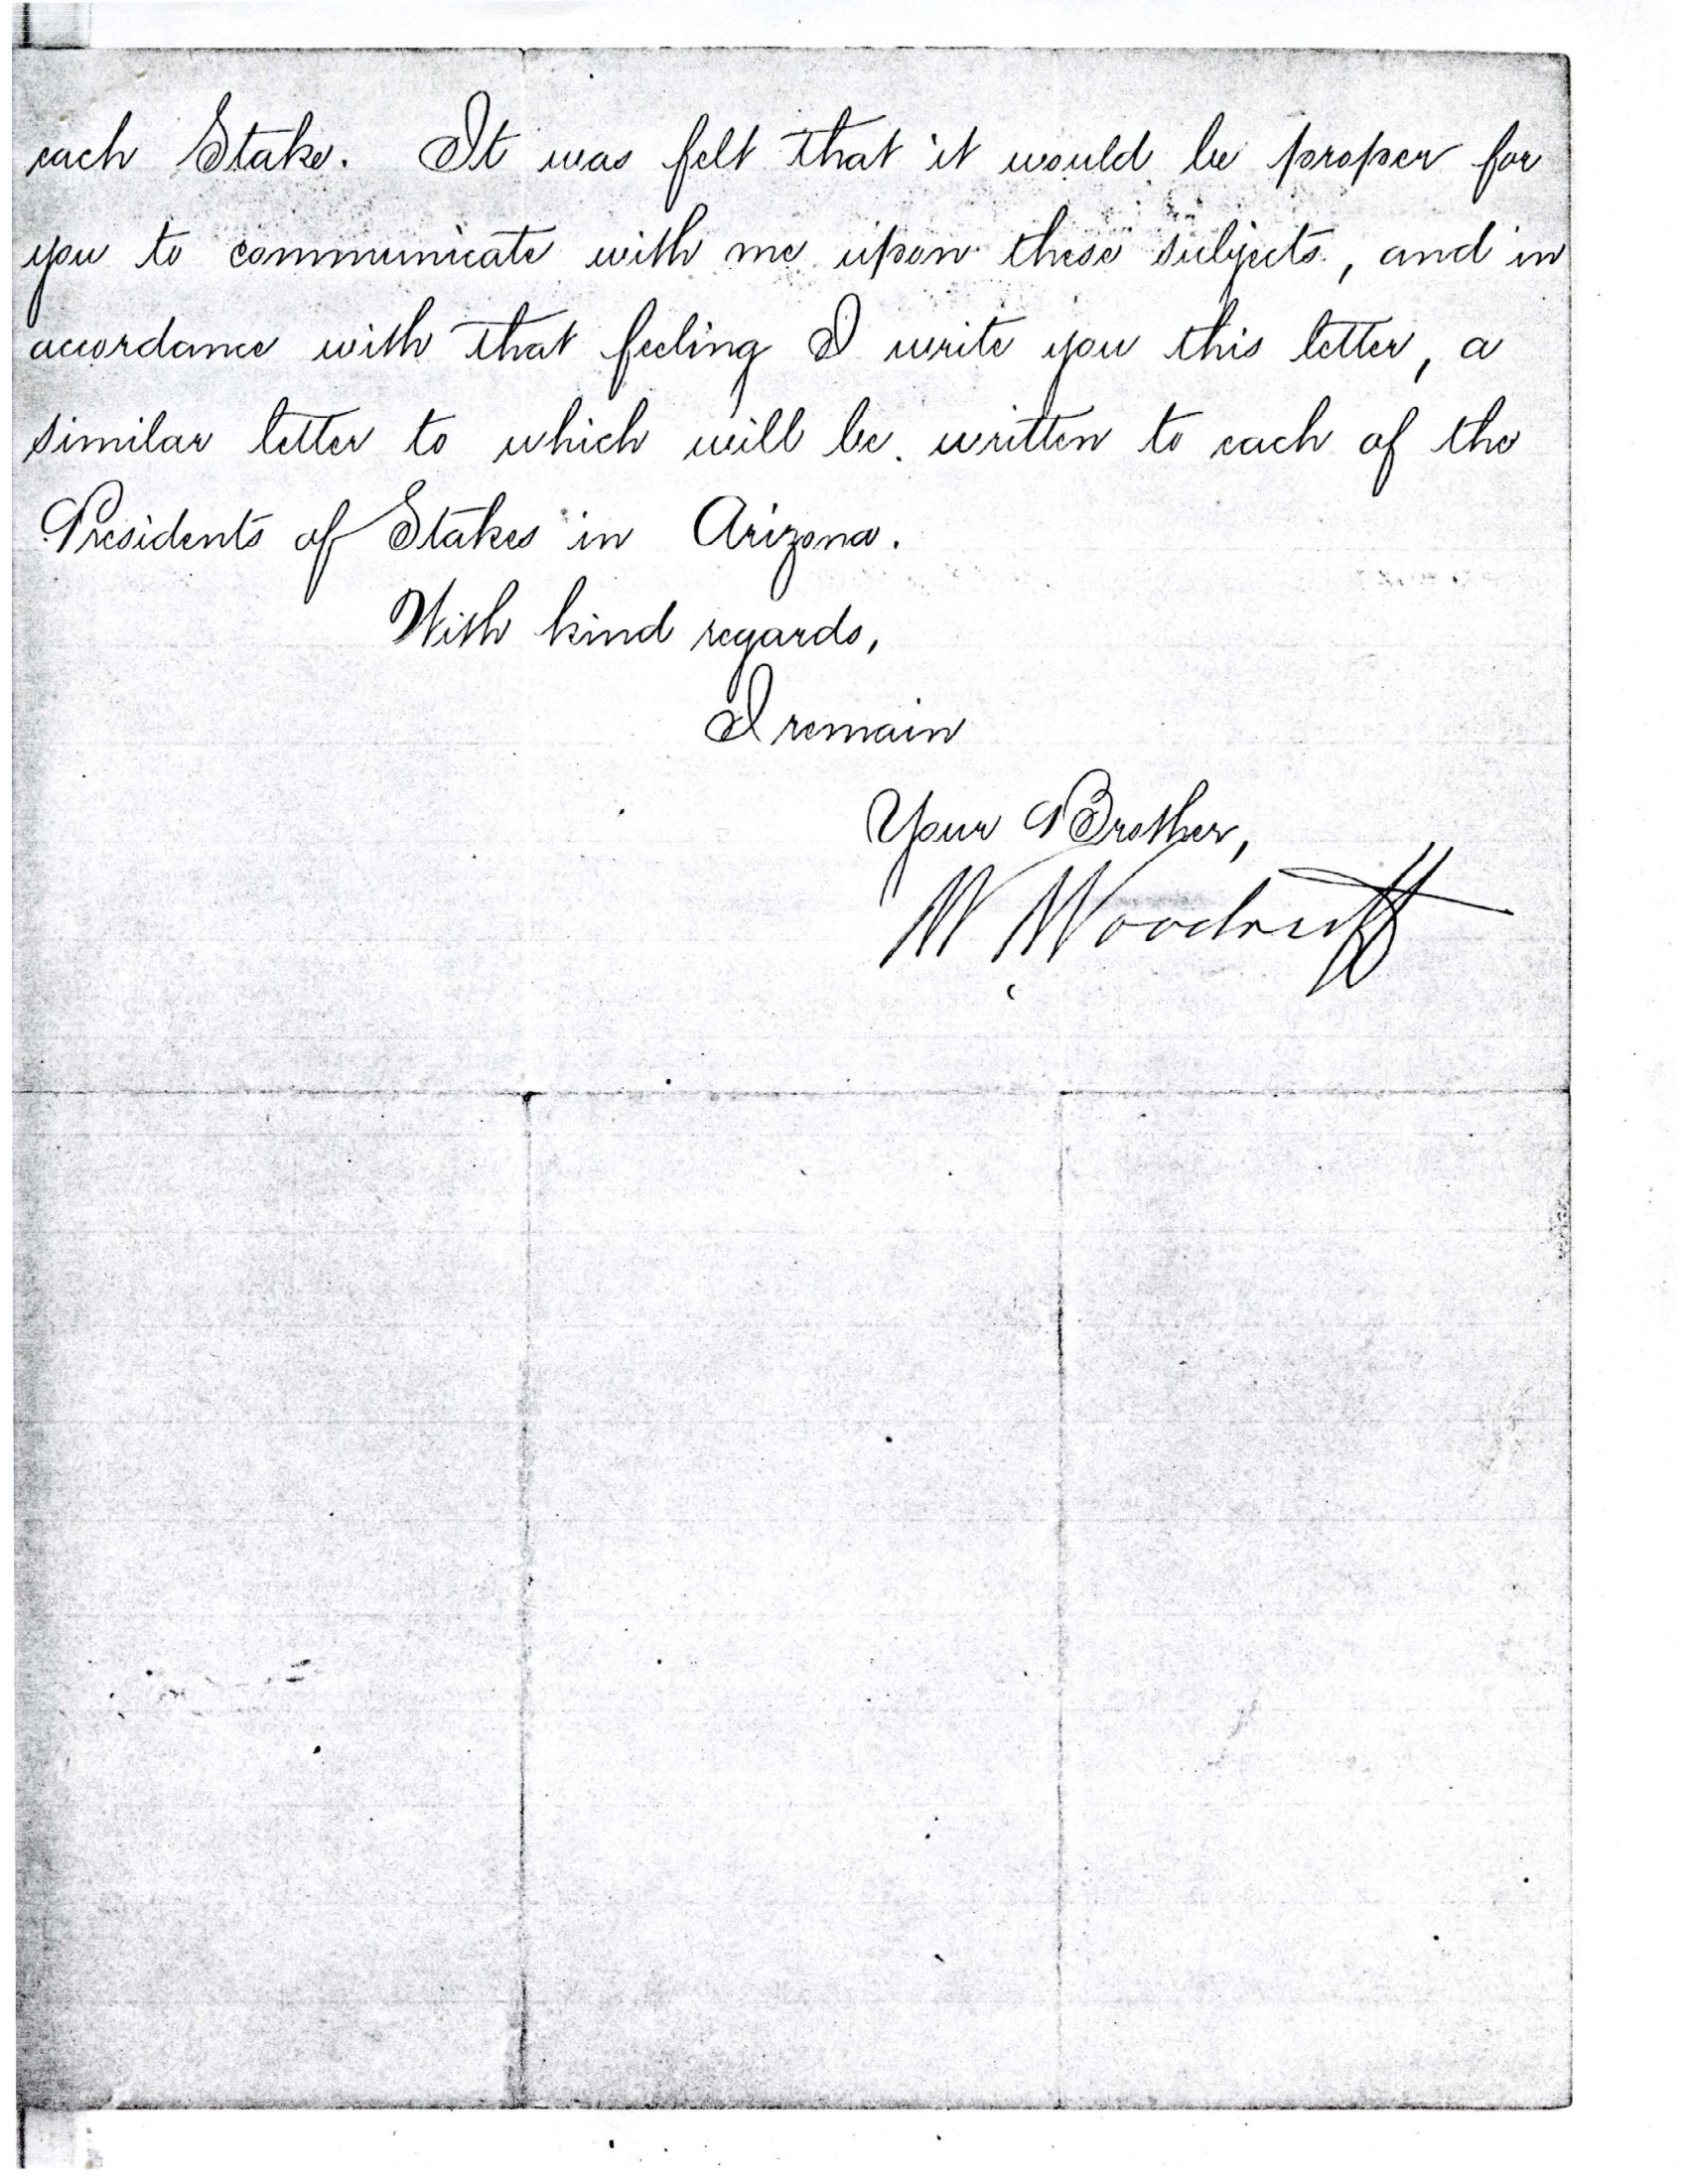 each Stake. It was felt that it would be proper for
you to communicate with me upon these subjects, and in
accordance with that feeling I write you this letter, a
similar letter to which will be written to each of the
Presidents of Stakes in Arizona.
With kind regards,
I remain
Your Brother,
W. Woodruff